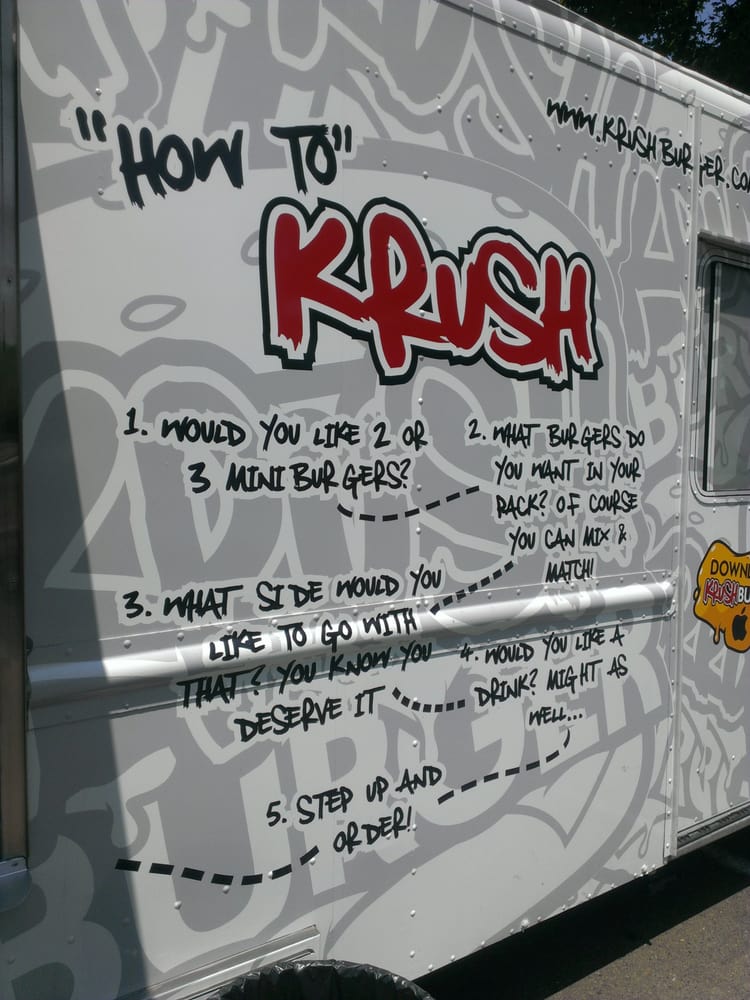 "HOW TO"
WWW.KRUSHBURGER.CO
KRUSH
1. WOULD YOU LIKE 2 OR
3 MINI BURGERS?
2. WHAT BURGERS DO
YOU WANT IN YOUR
PACK? OF COURSE
YOU CAN MIX &
MATCH!
3. WHAT SIDE WOULD YOU
LIKE TO GO WITH
THAT? YOU KNOW YOU
DESERVE IT
4. WOULD YOU LIKE A
DRINK? MIGHT AS
WELL...
5. STEP UP AND
ORDER!
DOWNL
KRUSHBU
BURGER